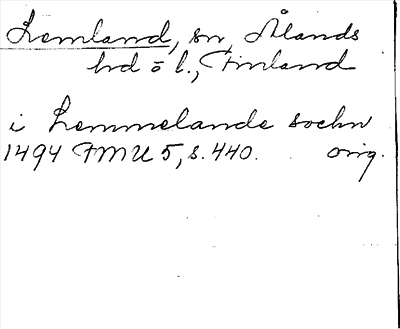 Lemland, sn, Ålands
hd o l., Finland
i Lemmelande sockn
1494 FMU 5, s. 440. orig.